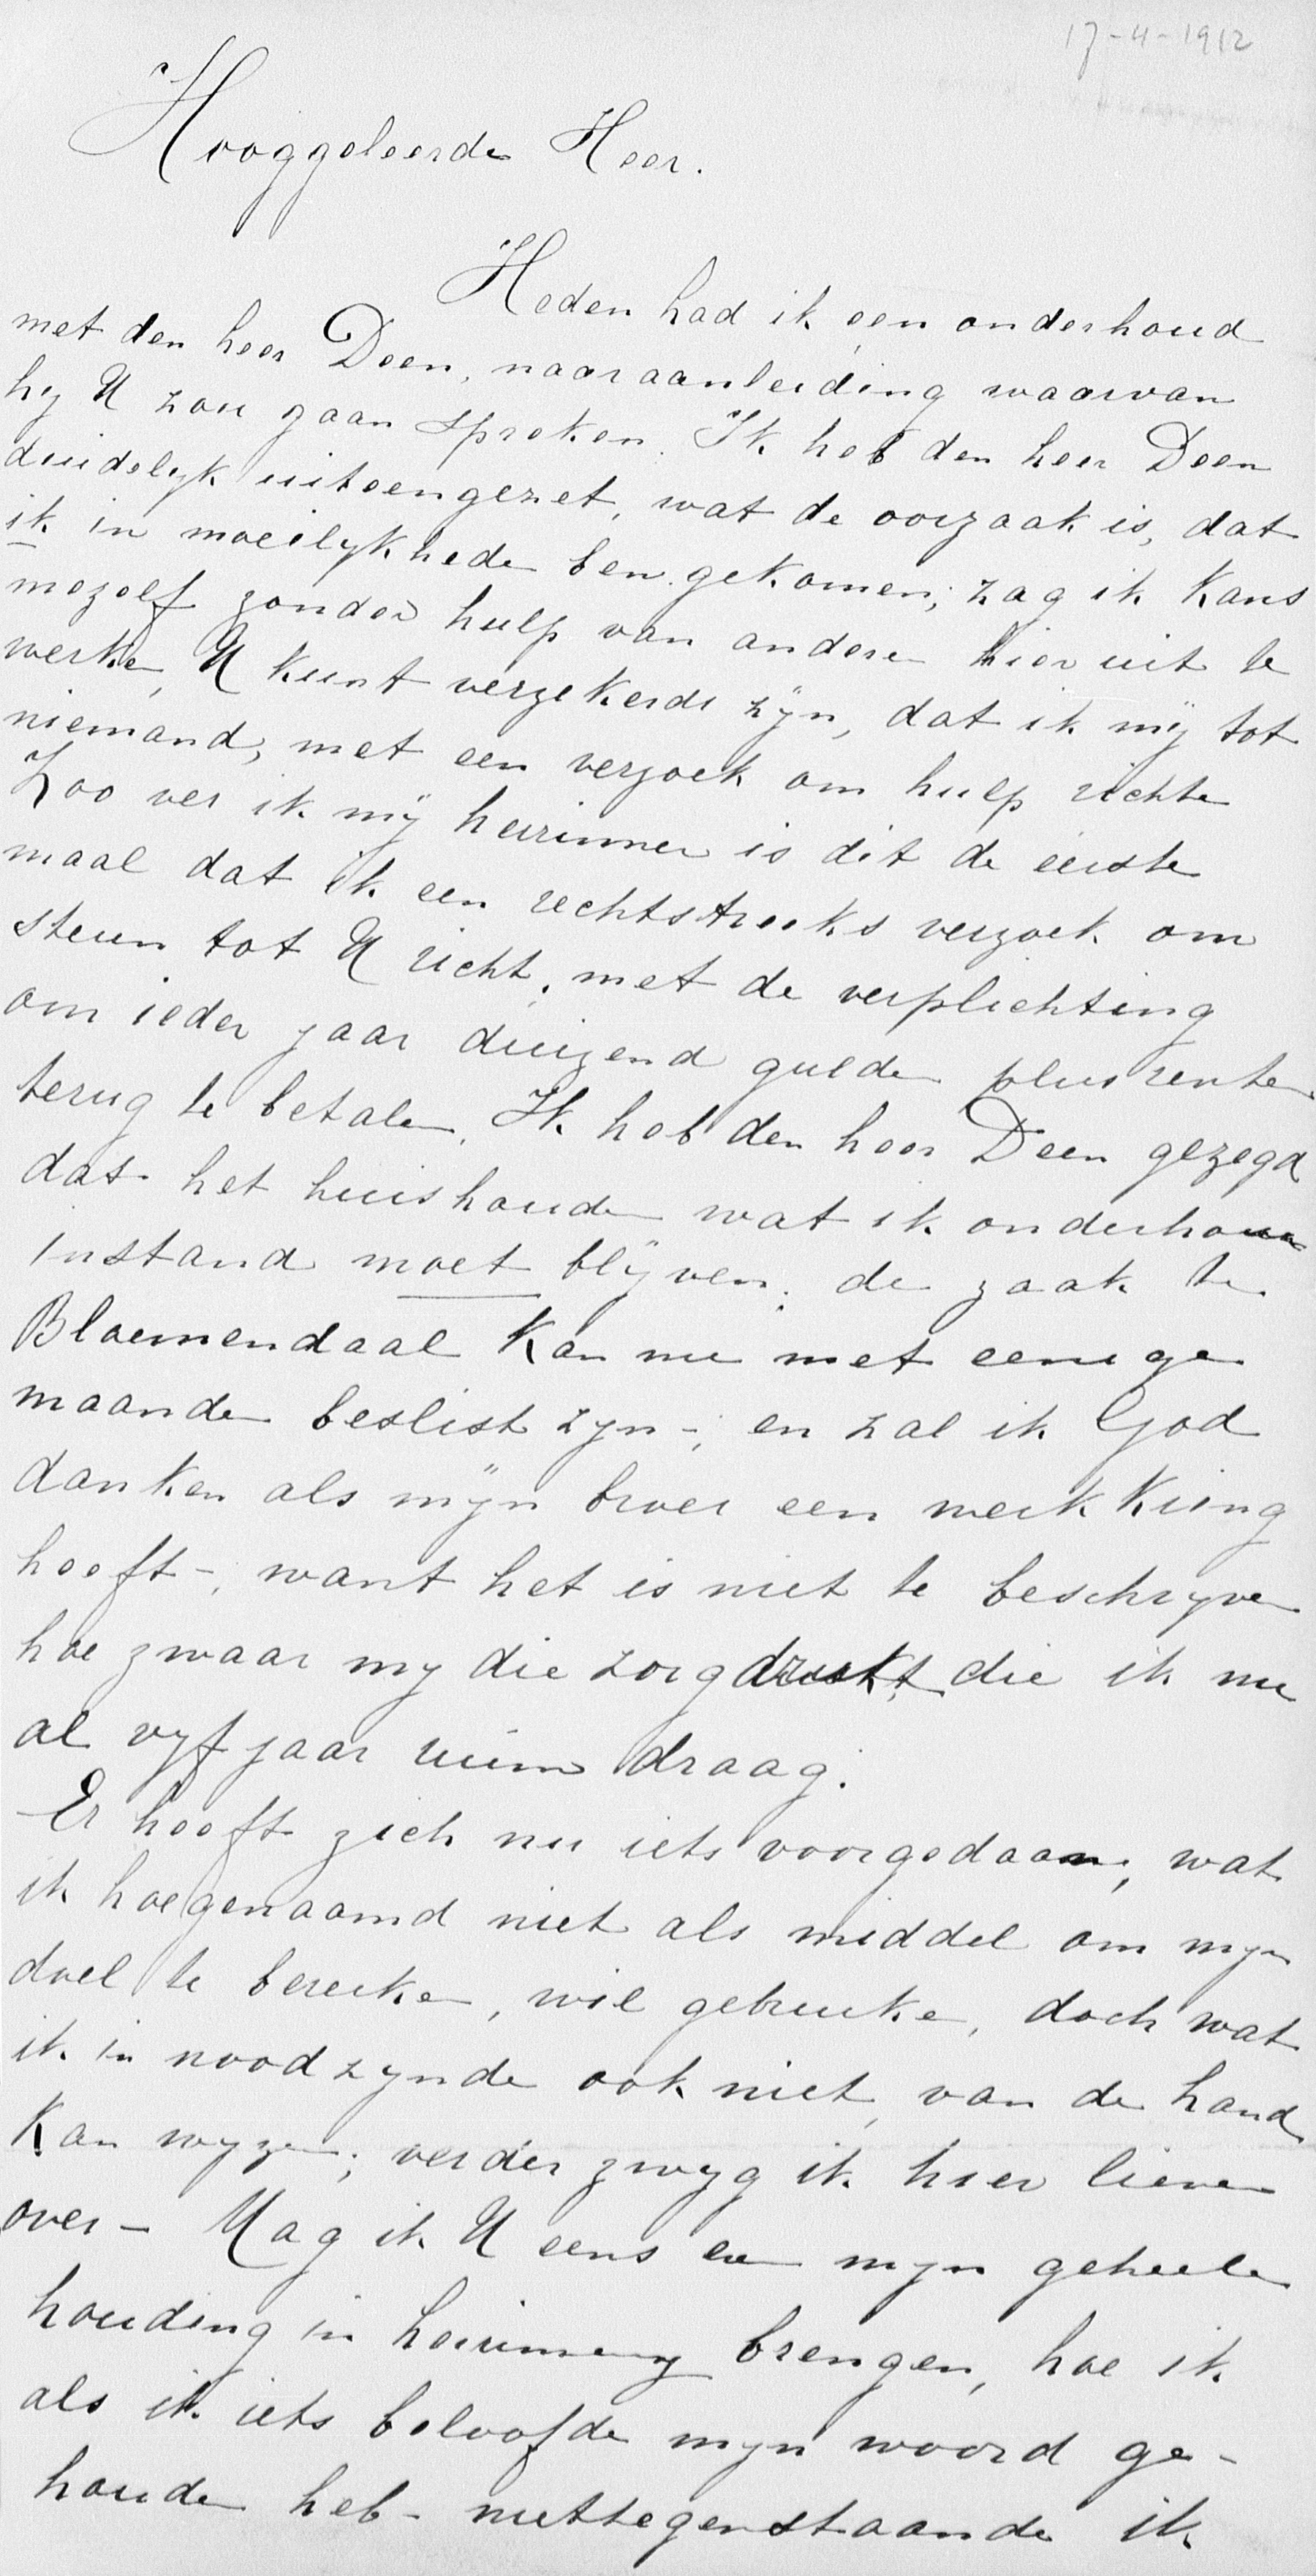 17-4-1912
Hooggeleerde Heer.
Heden had ik een onderhoud
met den heer Deen, naar aanleiding waarvan
hy U zou gaan spreken. Ik heb den heer Deen
duidelyk uiteengezet, wat de oorzaak is, dat
ik in moeilykhede ben gekomen; zag ik kans
mezelf zonder hulp van andere hier uit te
werke, U kunt verzekerde zijn, dat ik mij tot
niemand, met een verzoek om hulp richte
Zoo ver ik mij herinner is dit de eerste
maal dat ik een rechtstreeks verzoek om
steun tot U richt, met de verplichting
om ieder jaar duizend gulde plus rente
terug te betale. Ik heb den heer Deen gezegd
dat het huishoude wat ik onderhou
instand moet blijven; de zaak te
Bloemendaal kan nu met eenige
maande beslist zyn-; en zal ik God
danken als mijn broer een werkkring
heeft-, want het is niet te beschryve
hoe zwaar my die zorg drukt, die ik nu
al vyf jaar ruim draag.
Er heeft zich nu iets voorgedaan, wat
ik hoegenaamd niet als middel om myn
doel te bereike, wil gebruike, doch wat
ik in noodzynde ook niet van de hand
kan wyze; verder zwyg ik hier lieve
over- Mag ik U eens en myn geheele
houding in herinnering brengen, hoe ik
als ik iets beloofde myn woord ge-
houde heb- niettegenstaande ik